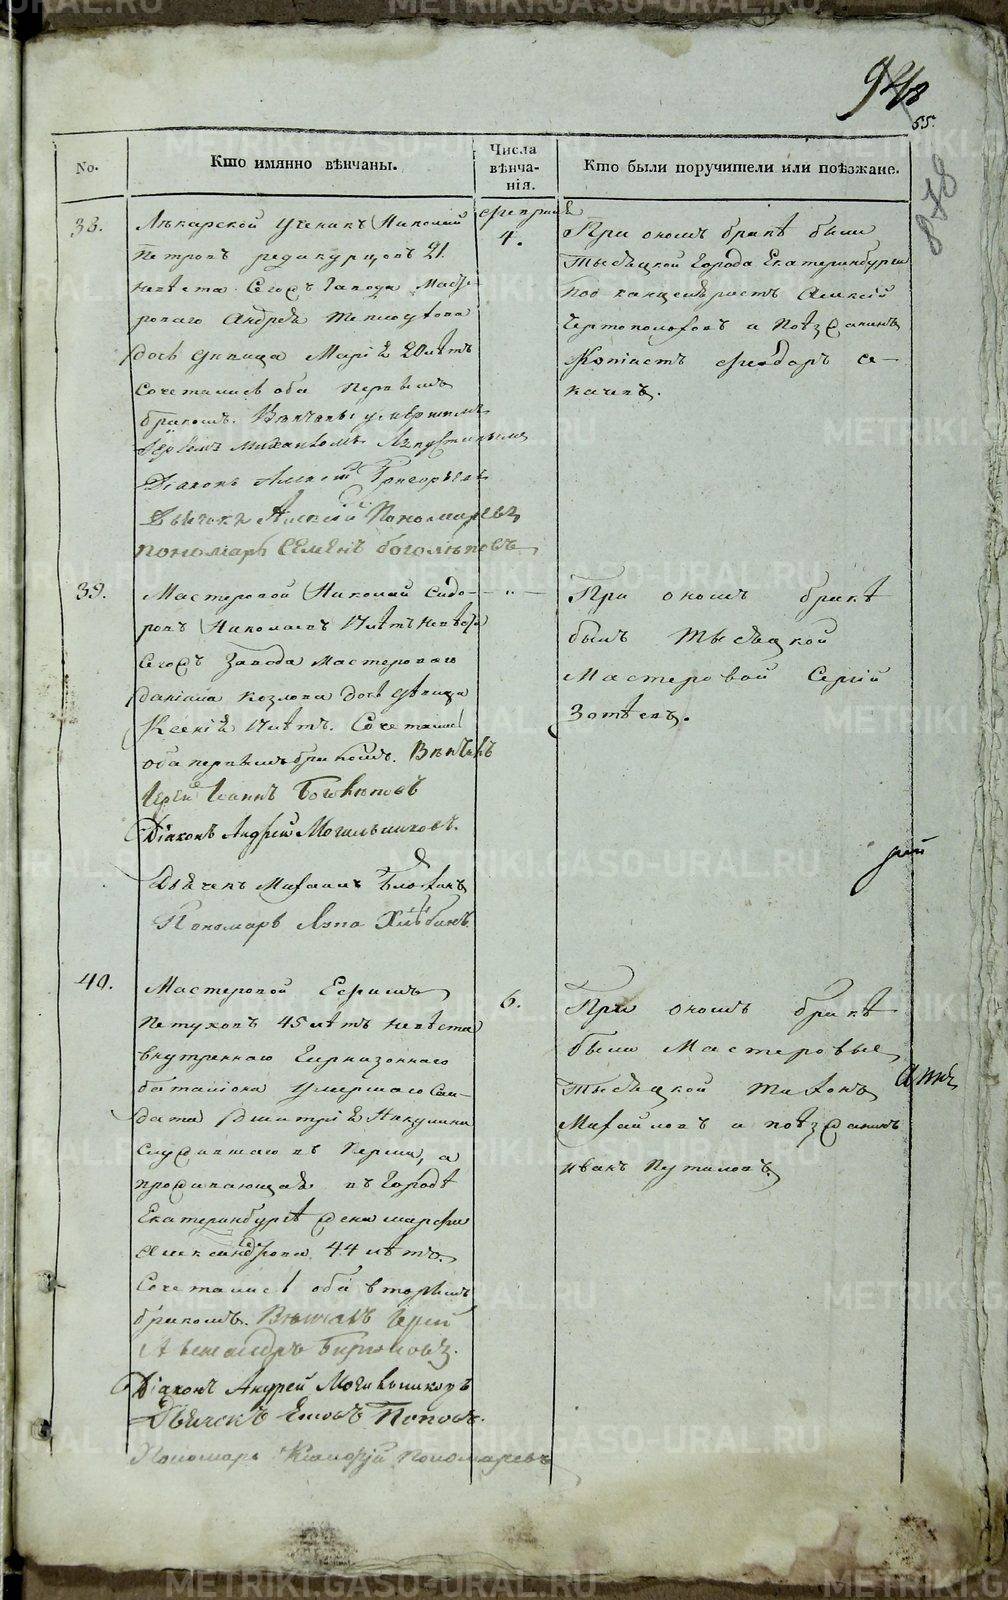 55.
878
No.
Кто имянно вѣнчаны.
Числа
вѣнча-
нія.
Кто были поручители или поѣзжане.
38.
Лѣкарской ученикъ Николай
Петровъ редикурцовъ 21.
невѣста Сегожъ Завода Масте
роваго Андрея Теплоухова
дочь дѣвица Марія 20 лѣтъ
сочетались оба первымъ
бракомъ. Вѣнчаны
Іереемъ
Діаконъ Алексѣй Григорьевъ
Дьячокъ Алексѣй Пономаревъ
пономарь Семенъ боголѣповъ
февраля
4.
При ономъ бракѣ были
Тысяцкой Города Екатеринбурга
под канцеляристъ Алексѣй
Чертополоховъ и Поѣзжанинъ
Копіистъ Феодоръ Се-
качевъ.
39.
Мастеровой Николай Сидо-
ровъ Николаевъ 17 лѣтъ невѣста
Сегожъ Завода мастероваго
даніила Козлова дочь дѣвица
Ксенія 17 лѣтъ. Сочетались
оба первымъ бракомъ. Вѣнчалъ
Іерей Іоаннъ Боголѣповъ
Діаконъ Андрей Могильниковъ.
Дьячекъ Михаилъ
Пономарь Хлѣбинъ
— „ —
При ономъ бракѣ
былъ Тысяцкой
Мастеровой Сергій
Зотѣевъ.
40.
Мастеровой Ефимъ
Петуховъ 45 лѣтъ невѣста
внутренняго Гарнизоннаго
баталіона умершаго Сол-
дата Дмитрія Никулина
служившаго въ Перми, а
проживающая въ Городѣ
Екатеринбургѣ жена марфа
Александрова 44 лѣтъ.
Сочетались оба вторымъ
бракомъ. Вѣнчалъ Іерей
Александръ Бирюковъ.
Діаконъ Андрей Могильниковъ
Дьячекъ Поповъ.
Пономарь Пономаревъ
6.
При ономъ бракѣ
были Мастеровые
Тысяцкой Тихонъ
Михайловъ и поѣзжанинъ
иванъ Путиловъ.
METRIKI.GASO-URAL.RU